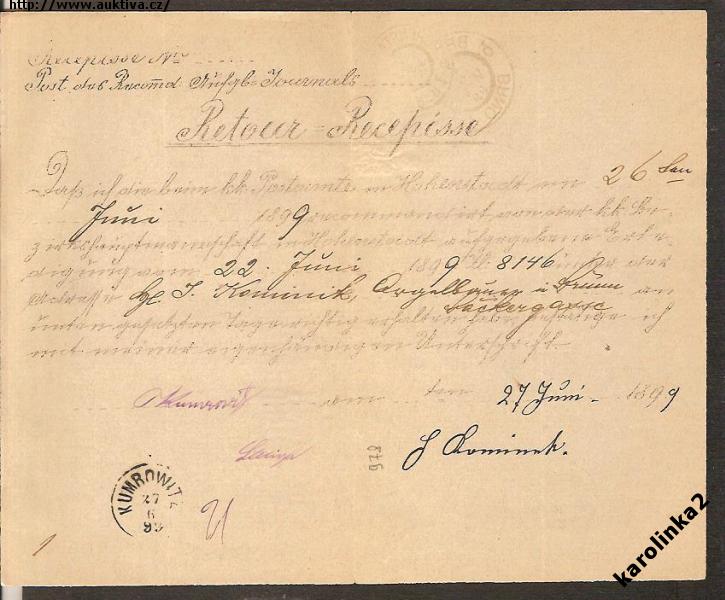 http://www.auktiva.cz/
Recepisse No
Post. des Recomd. Aufgb-Journals
Retour-Recepisse
Daß ich die beim kk. Postamte in Hohenstadt am 26 ten
Juni 1899 recommandirt von der kk. Be-
zirkshauptmannschaft in Hohenstadt aufgegebene Erle-
digung vom 22. Juni 1899 Zl. 8146 unter der
Adresse J. Kominik, Orgelbauer in Brünn
Bäckergasse an
unten gesetzten Tage richtig erhalten habe, bestätige ich
mit meiner eigenhändigen Unterschrift.
Kumrowitz am ten 27 Juni 1899
J Kominek.
978
KUMROWITZ
27
6
99
karolinka2